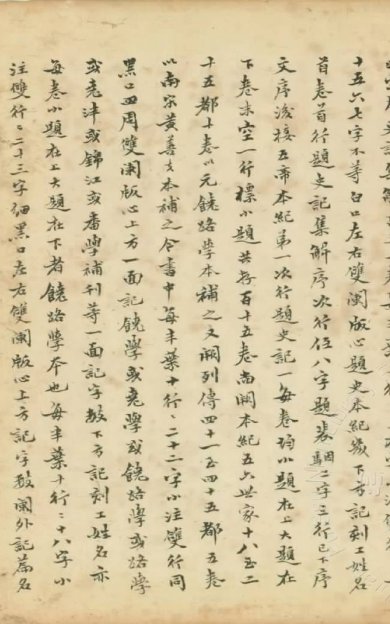 十五六七字不等白口左右雙闌版心題史本紀幾下方記刻工姓名
首卷首行題史記集解序次行低八字題裴駰二字三行已下序
文序後接五帝本紀第一次行題史記一每卷均小題在上大題在
下卷末空一行標小題共存百十五卷尚闕本紀五六世家十八至二
十五都十卷以元饒路學本補之又闕列傳四十一至四十五都五卷
以南宋黃善夫本補之今書中每半葉十行二十二字小注雙行同
黑口四周雙闌版心上方一面記饒學或堯學或饒路學或路學
或堯泮或錦江或番學補刊等一面記字數下方記刻工姓名亦
每卷小題在上大題在下者饒路學本也每半葉十行十八字小
注雙行二十三字細黑口左右雙闌版心上方記字數闌外記篇名